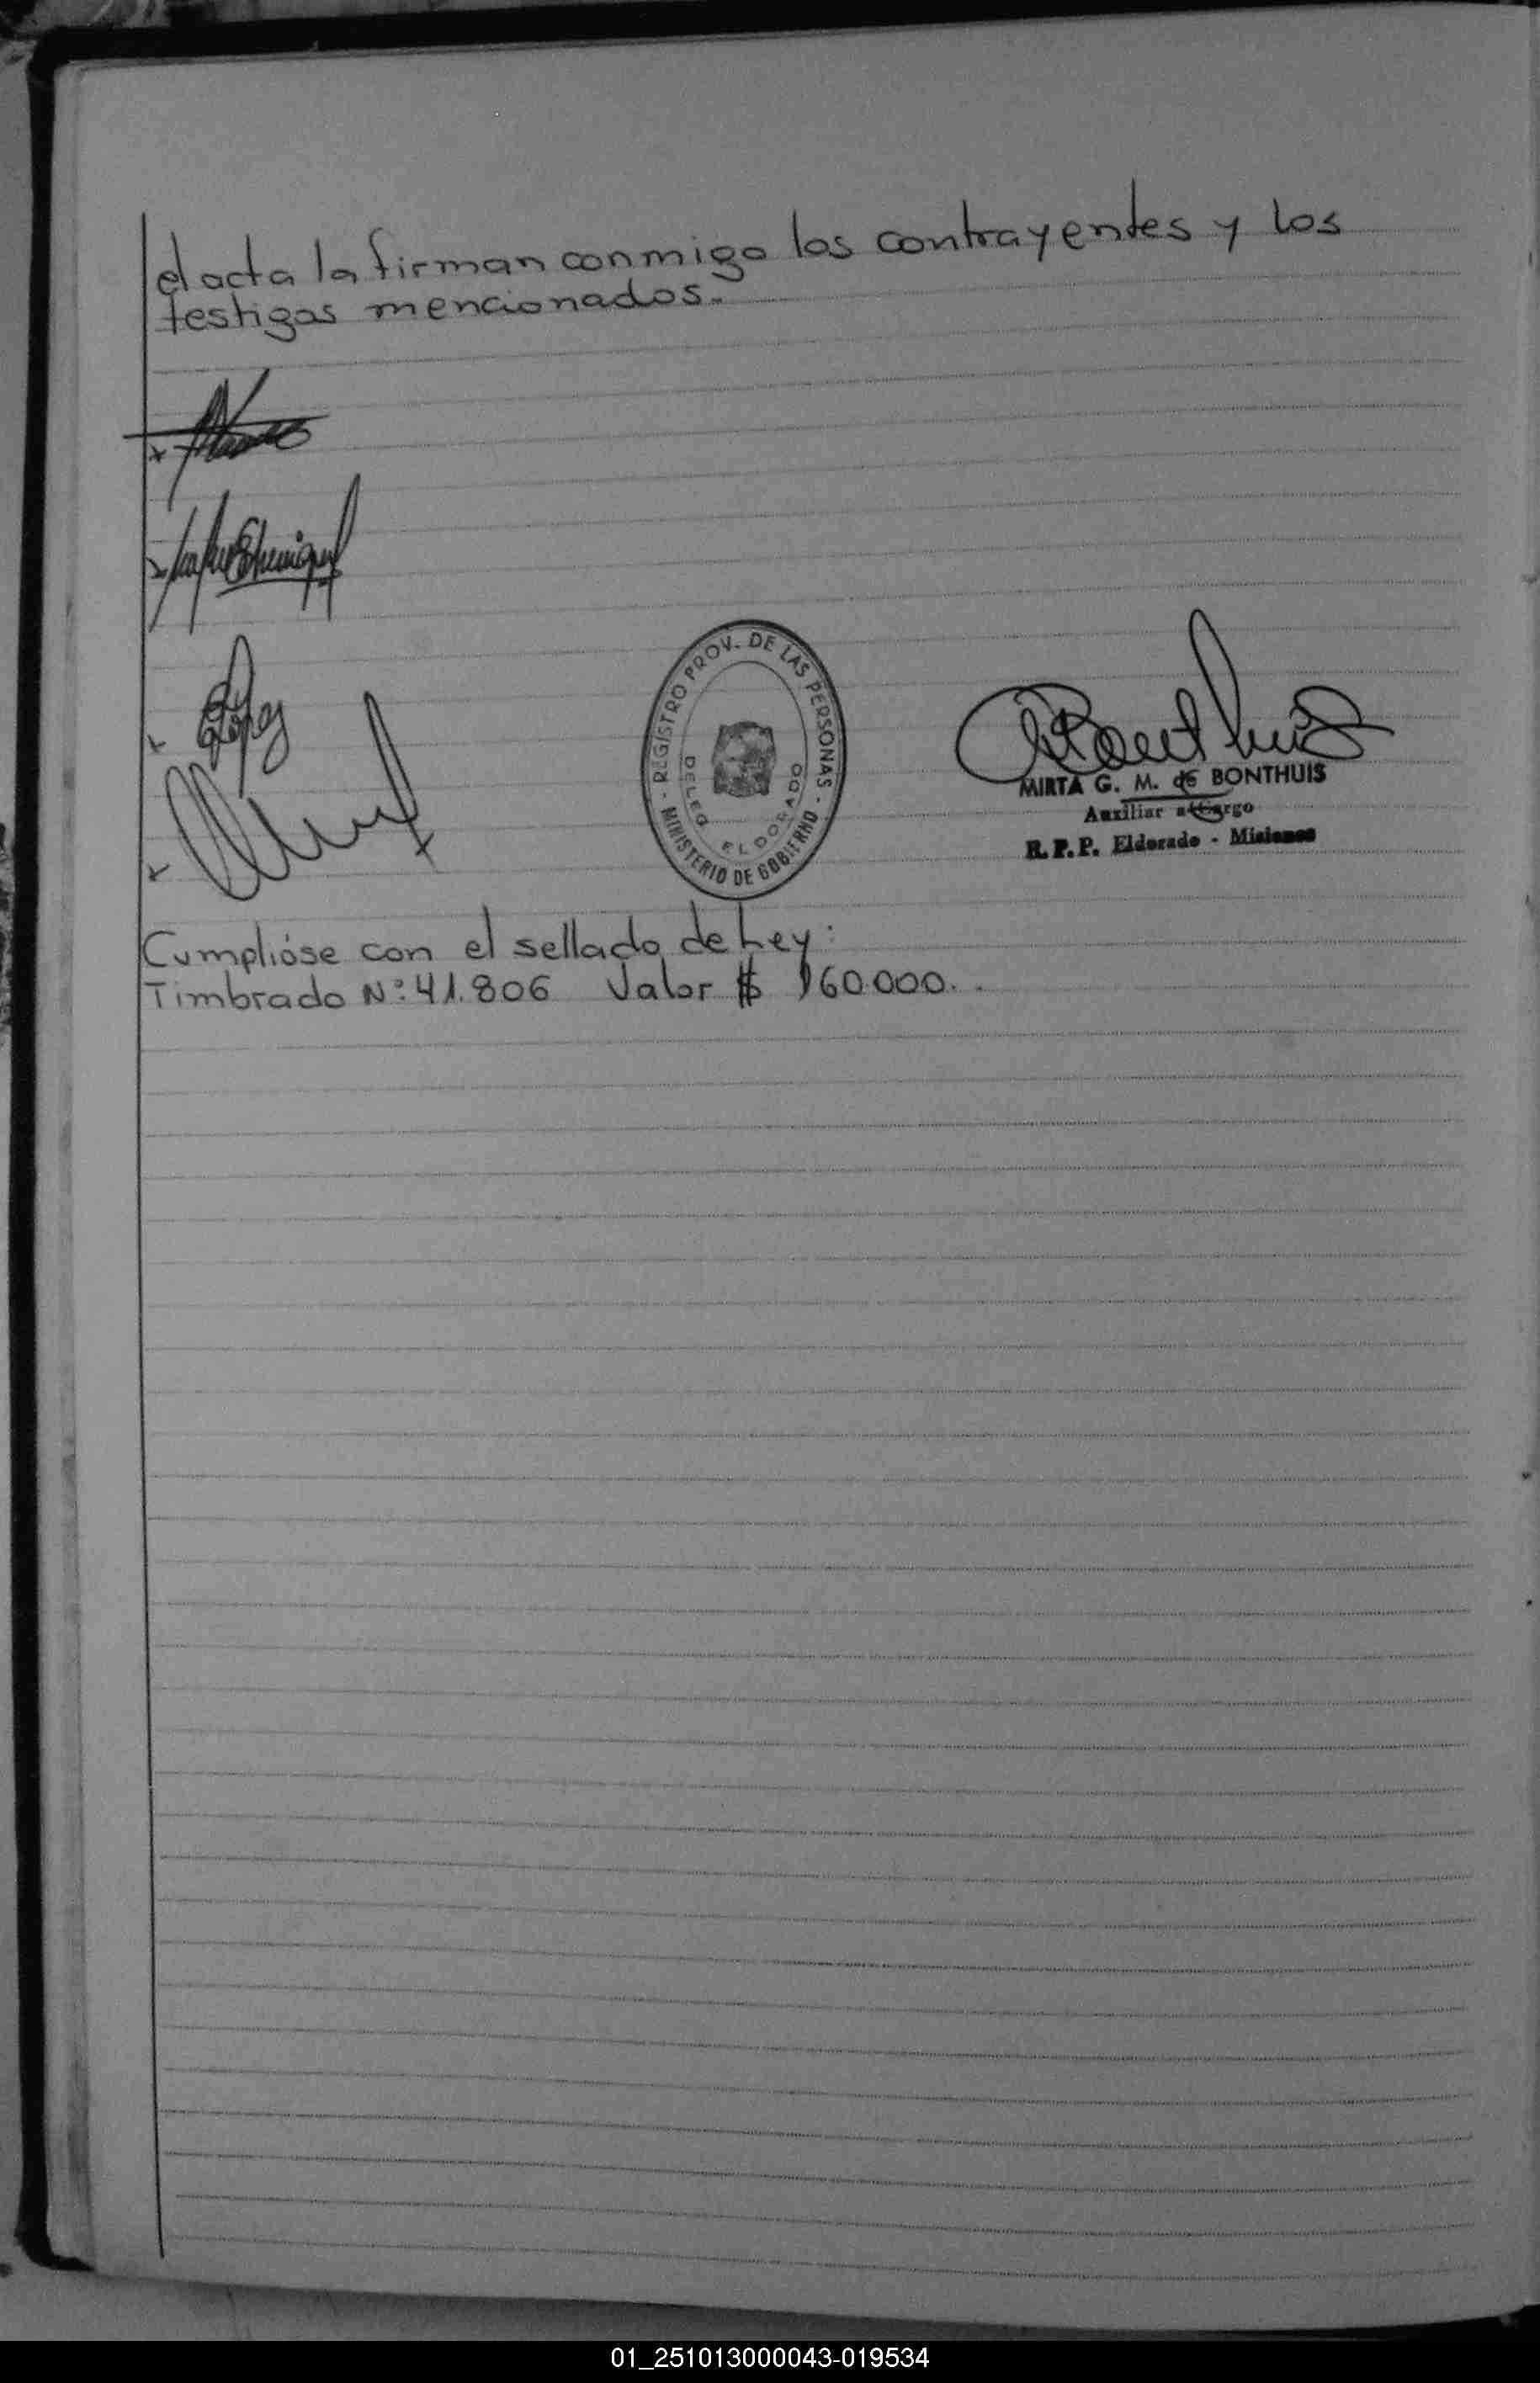 el acta la firman conmigo los contrayentes y los
testigos mencionados.-
REGISTRO PROV. DE LAS PERSONAS - MINISTERIO DE GOBIERNO -
DELEG. ELDORADO
MIRTA G. M. de BONTHUIS
Auxiliar a Cargo
R. P. P. Eldorado - Misiones
Cumplióse con el sellado de Ley:
Timbrado N°: 41.806 Valor $ 160.000.-
01_251013000043-019534